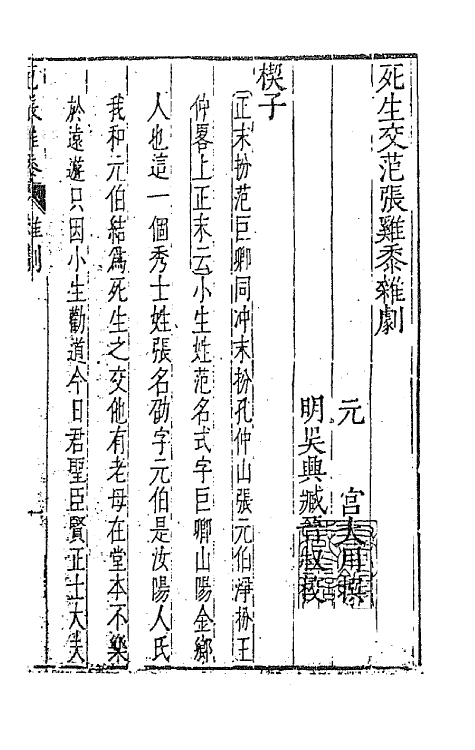 死生交范張雞黍雜劇
元　宮大用撰
明吳興臧晉叔校
楔子
正末扮范巨卿同冲末扮孔仲山張元伯淨扮王
仲畧上正末云小生姓范名式字巨卿山陽金鄉
人也這一個秀士姓張名劭字元伯是汝陽人氏
我和元伯結爲死生之交他有老母在堂本不樂
於遠遊只因小生勸道今日君聖臣賢正士大夫
范張雞黍　雜劇　一